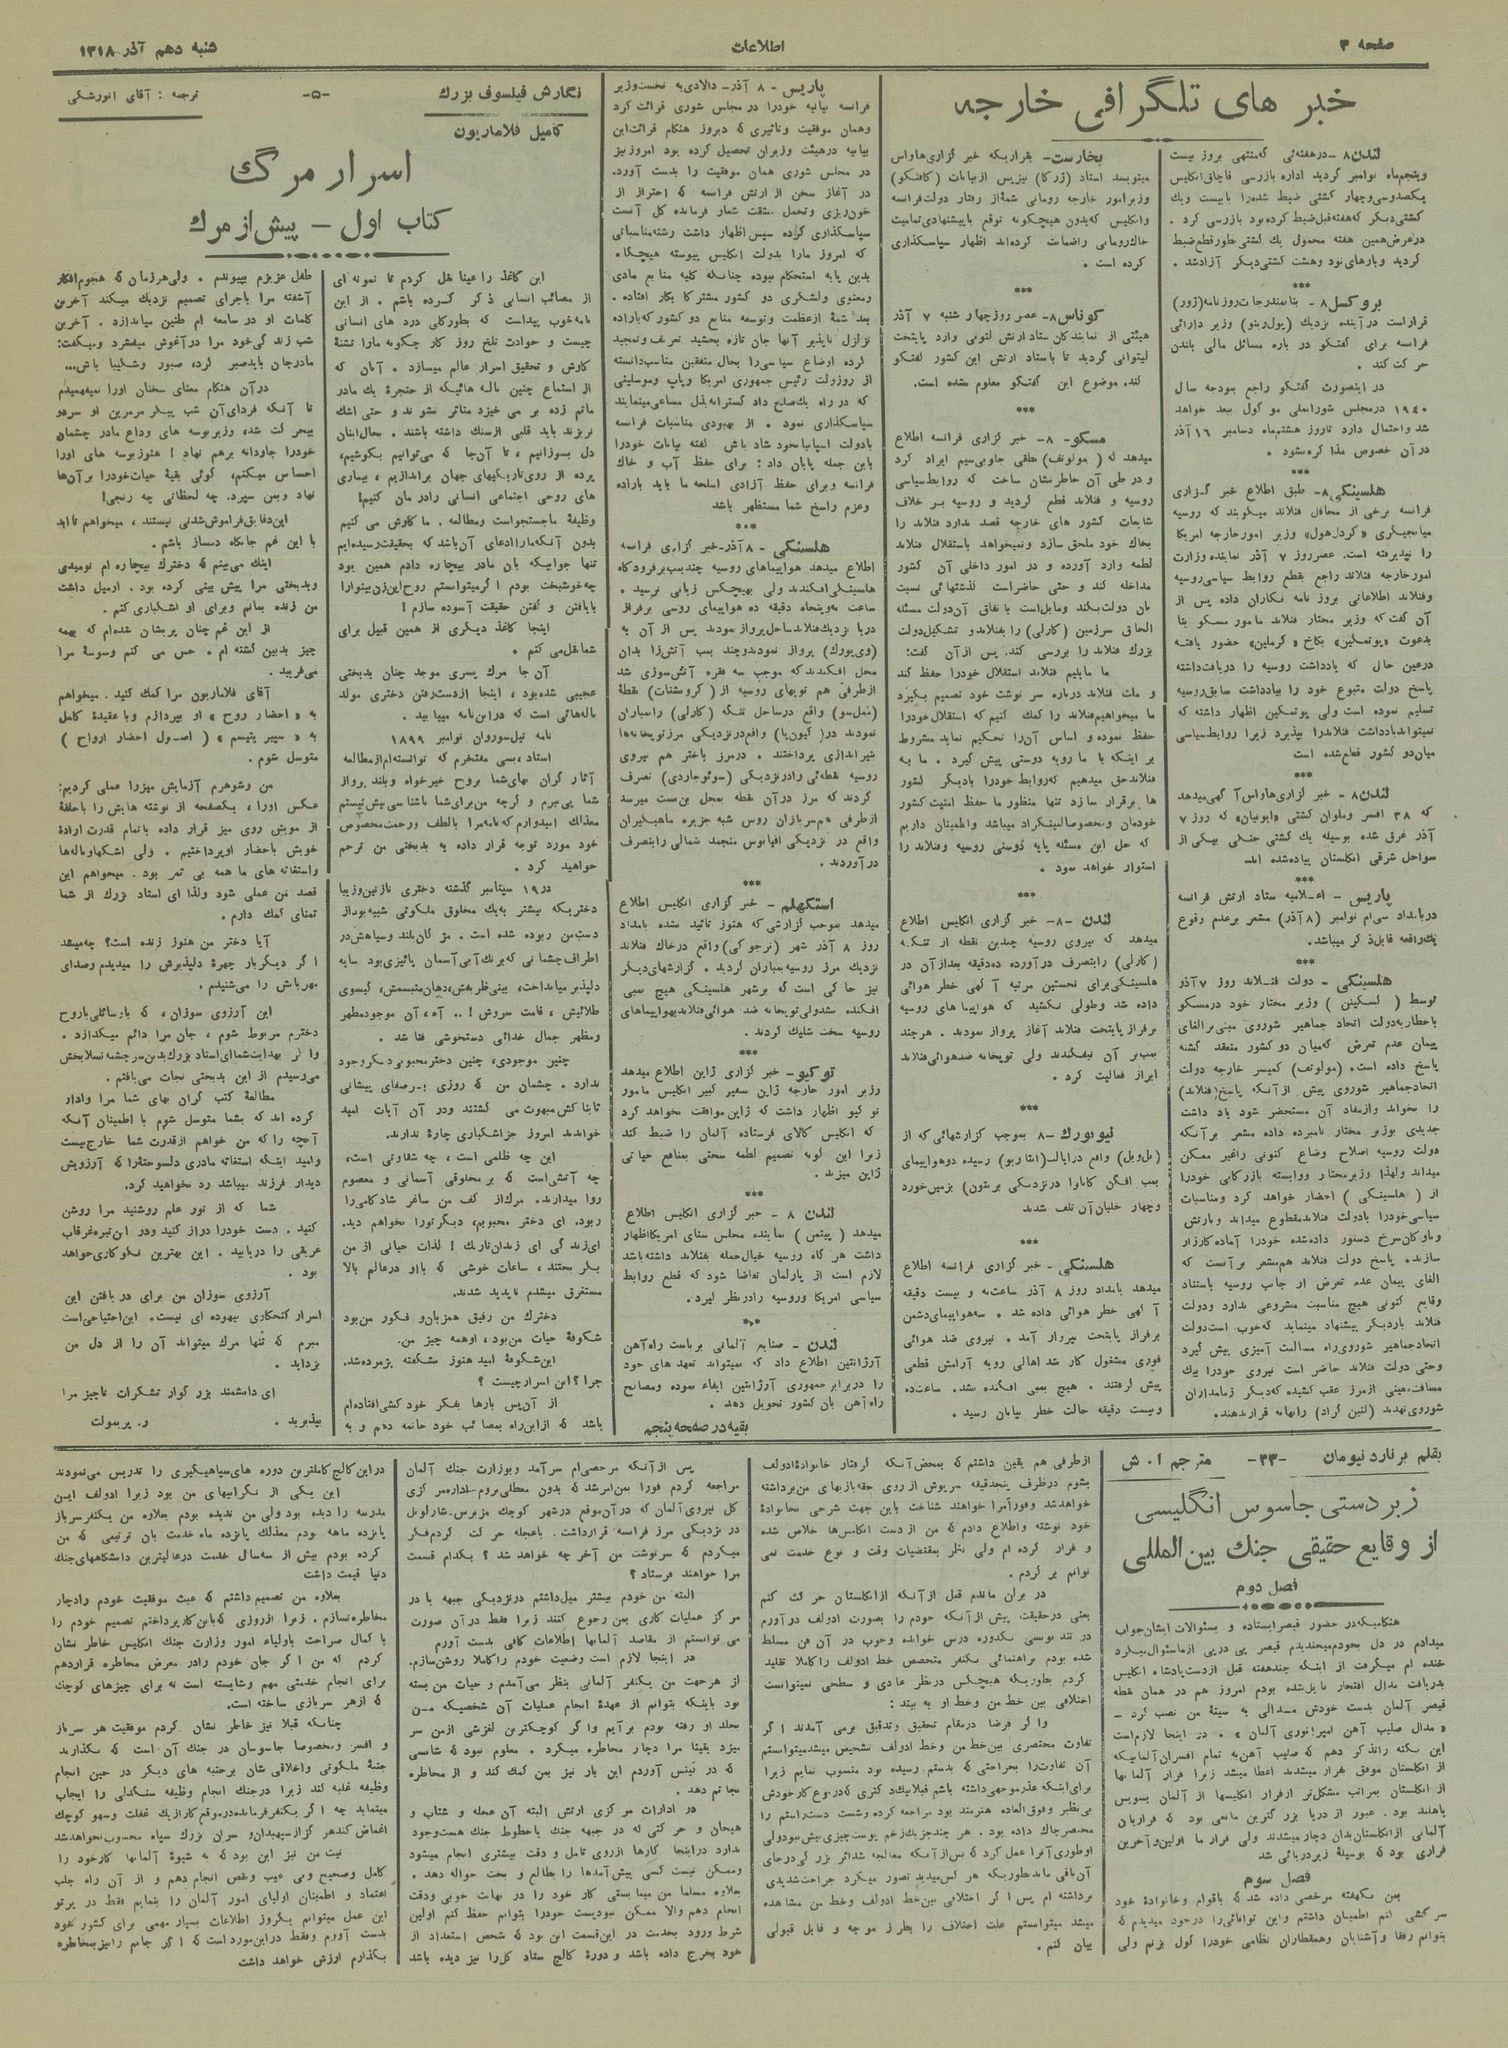 صفحه ۳
اطلاعات
شنبه دهم آذر ۱۳۱۸
خبر های تلگرافی خارجه
لندن ۸ - درهفته‌ئی که منتهی بروز بیست
وپنجم‌ماه نوامبر گردید اداره بازرسی قاچاق انگلیس
یکصدوسی‌وچهار کشتی ضبط شده را بابیست ویك
کشتی دیگر که هفته قبل ضبط کرده بود بازرسی کرد .
درعرض همین هفته محمول یك کشتی بطور قطع ضبط
گردید وبارهای نود وهشت کشتی دیگر آزاد شد .
***
بروکسل ۸ - بنا بمندرجات روزنامه (ژور)
قراراست درآینده نزدیك (پول‌رینو) وزیر دارائی
فرانسه برای گفتگو در باره مسائل مالی بلندن
حرکت کند .
در اینصورت گفتگو راجع ببودجه سال
۱۹۴۰ درمجلس شورایملی موکول ببعد خواهد
شد واحتمال دارد تاروز هشتم‌ماه دسامبر ۱۶ آذر
درآن خصوص مذاکره نشود .
***
هلسینکی ۸- طبق اطلاع خبر گزاری
فرانسه برخی از محافل فنلاند میگویند که روسیه
میانجیگری «کردل‌هول» وزیر امورخارجه امریکا
را نپذیرفته است. عصرروز ۷ آذر نماینده وزارت
امورخارجه فنلاند راجع بقطع روابط سیاسی روسیه
وفنلاند اطلاعاتی بروز نامه نگاران داده پس از
آن گفت که وزیر مختار فنلاند مامور مسکو بنا
بدعوت «پوتمکین» بکاخ «کرملین» حضور یافته
درعین حال که یادداشت روسیه را دریافت‌داشته
پاسخ دولت متبوع خود را بیادداشت سابق روسیه
تسلیم نموده است ولی پوتمکین اظهار داشته که
نمیتواند یادداشت فنلاند را بپذیرد زیرا روابط سیاسی
میان دو کشور قطع شده است
***
لندن ۸ - خبر گزاری هاواس آگهی میدهد
که ۳۸ افسر وملوان کشتی «ابونیان» که روز ۷
آذر غرق شده بوسیله یك کشتی جنگی بیکی از
سواحل شرقی انگلستان پیاده شده اند
***
پاریس - اعلامیه ستاد ارتش فرانسه
دربامداد سی‌ام نوامبر (۸ آذر) مشعر برعدم وقوع
یك واقعه قابل ذکر میباشد.
***
هلسینکی - دولت فنلاند روز ۷ آذر
توسط ( اسکینن ) وزیر مختار خود درمسکو
باخطار به دولت اتحاد جماهیر شوروی مبنی برالغای
پیمان عدم تعرض که میان دو کشور منعقد گشته
پاسخ داده است. (مولوتف) کمیسر خارجه دولت
اتحاد جماهیر شوروی پیش از آنکه پاسخ (فنلاند)
را بخواند وازمفاد آن مستحضر شود یاد داشت
جدیدی بوزیر مختار نامبرده داده مشعر برآنکه
دولت روسیه اصلاح وضاع کنونی راغیر ممکن
میداند ولهذا وزیرمختار ووابسته بازرگانی خودرا
از ( هلسینکی ) احضار خواهد کرد ومناسبات
سیاسی خودرا بادولت فنلاند مقطوع میداند وبارتش
وناوگان سرخ دستور داده شده خودرا آماده کارزار
سازند. پاسخ دولت فنلاند هم مشعر برآنست که
الغای پیمان عدم تعرض از جانب روسیه باستناد
وقایع کنونی هیچ مناسبت مشروعی ندارد ودولت
فنلاند باردیگر پیشنهاد مینماید که خوب است دولت
اتحاد جماهیر شوروی راه مسالمت آمیزی پیش گیرد
وحتی دولت فنلاند حاضر است نیروی خودرا بیك
مسافت معینی از مرز عقب کشیده که دیگر زمامداران
شوروی تهدید (لنین گراد) را بهانه قرار ندهند.
بخارست- بقراریکه خبر گزاری هاواس
مینویسد استاد (ژرکا) نیز پس از بیانات (کافنکو)
وزیرامور خارجه رومانی شمه‌ای از رفتار دولت فرانسه
وانگلیس که بدون هیچگونه توقع یا پیشنهادی تمامیت
خاك رومانی را ضمانت کرده‌اند اظهار سپاسگذاری
کرده است .
***
کوناس ۸- عصر روز چهار شنبه ۷ آذر
هیئتی از نمایندگان ستاد ارتش لتونی وارد پایتخت
لیتوانی گردید تا باستاد ارتش این کشور گفتگو
کند. موضوع این گفتگو معلوم نشده است.
***
مسکو- ۸- خبر گزاری فرانسه اطلاع
میدهد که ( مولوتف) نطقی جلوبی‌سیم ایراد کرد
و در طی آن خاطرنشان ساخت که روابط سیاسی
روسیه و فنلاند قطع گردید و روسیه بر خلاف
شایعات کشور های خارجه قصد ندارد فنلاند را
بخاك خود ملحق سازد ونمیخواهد باستقلال فنلاند
لطمه وارد آورده و در امور داخلی آن کشور
مداخله کند و حتی حاضراست گذشتهائی نسبت
بان دولت بکند ومایل است با تفاق آن دولت مسئله
الحاق سرزمین (کارلی) را بفنلاند و تشکیل دولت
بزرك فنلاند را بررسی کند. پس از آن گفت:
ما مایلیم فنلاند استقلال خودرا حفظ کند
و ملت فنلاند درباره سر نوشت خود تصمیم بگیرد
ما میخواهیم فنلاند را کمك کنیم که استقلال خودرا
حفظ نموده و اساس آن را تحکیم نماید مشروط
بر اینکه با ما رویه دوستی پیش گیرد . ما به
فنلاند حق میدهیم که روابط خودرا بادیگر کشور
ها برقرار سازد تنها منظور ما حفظ امنیت کشور
خودمان و بخصوصا لنینگراد میباشد واطمینان داریم
که حل این مسئله پایه دوستی روسیه وفنلاند را
استوار خواهد نمود .
***
لندن -۸- خبر گزاری انگلیس اطلاع
میدهد که نیروی روسیه چندین نقطه از تنگه
(کارلی) را بتصرف درآورده ده دقیقه بعد از آن در
هلسینکی برای نخستین مرتبه آگهی خطر هوائی
داده شد وطولی نکشید که هواپیما های روسیه
برفراز پایتخت فنلاند آغاز پرواز نمودند . هرچند
بمب بر آن نیفکندند ولی توپخانه ضد هوائی فنلاند
ابراز فعالیت کرد .
***
نیویورك -۸ بموجب گزارشهائی که از
(بل‌ویل) واقع در ایالت (انتاریو) رسیده دوهواپیمای
بمب افکن کانادا درنزدیکی برنتون) بزمین خورد
وچهار خلبان آن تلف شدند
***
هلسینکی - خبر گزاری فرانسه اطلاع
میدهد بامداد روز ۸ آذر ساعت نه و بیست دقیقه
آگهی خطر هوائی داده شد . سه هواپیمای دشمن
برفراز پایتخت بپرواز آمد . نیروی ضد هوائی
فوری مشغول کار شد اهالی رویه آرامش قطعی
پیش گرفتند . هیچ بمبی افکنده نشد. ساعت ده
وبیست دقیقه حالت خطر بپایان رسید .
پاریس - ۸ آذر- دالادی به نخست‌وزیر
فرانسه بیانیه خودرا در مجلس شوری قرائت کرد
وهمان موفقیت وتاثیری که دیروز هنگام قرائت این
بیانیه در هیئت وزیران تحصیل کرده بود امروز نیز
در مجلس شوری همان موفقیت را بدست آورد.
در آغاز سخن از ارتش فرانسه که احتراز از
خون‌ریزی وتحمل مشقت شعار فرمانده کل آنست
سپاسگذاری کرده سپس اظهار داشت رشته مناسباتی
که امروز مارا بدولت انگلیس پیوسته هیچگاه
بدین پایه استحکام نبوده چنانکه کلیه منابع مادی
ومعنوی ولشگری دو کشور مشترکا بکار افتاده .
بعد شمه از عظمت وتوسعه منابع دو کشور که باراده
تزلزل ناپذیر آنها جان تازه بخشید تعریف وتمجید
کرده اوضاع سیاسی را بحال متفقین مناسب دانسته
از روزولت رئیس جمهوری امریکا وپاپ وموسلینی
که در راه بك صلح داد گسترانه بذل مساعی مینمایند
سپاسگذاری نمود . از بهبودی مناسبات فرانسه
بادولت اسپانیا خود شاد باش گفته بیانات خودرا
باین جمله پایان داد : برای حفظ آب و خاك
فرانسه وبرای حفظ آزادی اسلحه ما باید باراده
وعزم راسخ شما مستظهر باشد
***
هلسنکی - ۸ آذر-خبر گزاری فرانسه
اطلاع میدهد هواپیماهای روسیه چند بمب برفرودگاه
هلسینکی افکندند ولی بهیچکس زیانی نرسید .
ساعت نه وپنجاه دقیقه ده هواپیمای روسی برفراز
دریا نزدیك فنلاند ساحل پرواز نمودند پس از آن به
(وی‌بورك) پرواز نمودند وچند بمب آتش‌زا بدان
محل افکندند که موجب سه فقره آتش‌سوزی شد
از طرفی هم توپهای روسیه از ( کرونشتات) نقطه
(نمل‌سو) واقع درساحل تنگه (کارلی) را بمباران
نمودند در( کیون‌یا) واقع درنزدیکی مرز توپخانه‌ها
بتیر اندازی پرداختند . درمرز باختر هم نیروی
روسیه نقطه‌ئی رادر نزدیکی (سوئوجاردی) تصرف
کردند که مرز درآن نقطه بمحل بن‌بست میرسد
از طرفی هم سربازان روس شبه جزیره ماهیگیران
واقع در نزدیکی اقیانوس منجمد شمالی را بتصرف
درآوردند .
***
استکهلم - خبر گزاری انگلیس اطلاع
میدهد بموجب گزارشی که هنوز تائید نشده بامداد
روز ۸ آذر شهر (نرجوکی) واقع درخاك فنلاند
نزدیك مرز روسیه بمباران گردید . گزارشهای دیگر
نیز حاکی است که برشهر هلسینکی هیچ بمبی
افکنده نشد ولی توپخانه ضد هوائی فنلاند بهواپیماهای
روسیه سخت شلیك کردند.
***
توکیو- خبر گزاری ژاپن اطلاع میدهد
وزیر امور خارجه ژاپن سفیر کبیر انگلیس مامور
توکیو اظهار داشت که ژاپن موافقت نخواهد کرد
که انگلیس کالای فرستاده آلمان را ضبط کند
زیرا این گونه تصمیم لطمه سختی بمنافع حیاتی
ژاپن میزند .
***
لندن ۸ - خبر گزاری انگلیس اطلاع
میدهد ( پیتمن ) نماینده مجلس سنای امریکا اظهار
داشت هر گاه روسیه خیال حمله بفنلاند داشته باشد
لازم است از پارلمان تقاضا شود که قطع روابط
سیاسی امریکا وروسیه را در نظر گیرد.
***
لندن - صنایع آلمانی بریاست راه‌آهن
آرژانتین اطلاع داد که نمیتواند تعهد های خود
را دربرابر جمهوری آرژانتین ایفاء نموده ومصالح
راه آهن بان کشور تحویل دهد.
بقیه در صفحه پنجم
نگارش فیلسوف بزرك
کامیل فلاماریون
-۵-
ترجمه : آقای انورشکی
اسرار مرگ
کتاب اول - پیش از مرك
این کاغذ را عینا نقل کردم تا نمونه ای
از مصائب انسانی ذکر کرده باشم . از این
نامه خوب پیداست که بطور کلی درد های انسانی
چیست و حوادث تلخ روز گار چگونه مارا تشنة
کاوش و تحقیق اسرار عالم میسازد . آنان که
از استماع چنین ناله هائیکه از حنجرة یك مادر
ماتم زده بر می خیزد متاثر نشوند و حتی اشك
نریزند باید قلبی از سنك داشته باشند . بحال اینان
دل بسوزانیم ، تا آن‌جا که می‌توانیم بکوشیم،
پرده از روی تاریکیهای جهان براندازیم ، بیماری
های روحی اجتماعی انسانی را درمان کنیم!
وظیفة ما جستجواست ومطالعه. ما کاوش می کنیم
بدون آنکه مارا ادعای آن باشد که بحقیقت رسیده‌ایم
تنها جوابیکه بان مادر بیچاره دادم همین بود
چه خوشبخت بودم اگر میتوانستم روح این زن بینوارا
بایافتن و گفتن حقیقت آسوده سازم !
اینجا کاغذ دیگری از همین قبیل برای
شما نقل می کنم .
آن جا مرك پسری موجد چنان بدبختی
عجیبی شده بود ، اینجا از دست رفتن دختری مولد
ناله‌هائی است که دراین نامه میبا بید .
نامه نیل‌سوروان نوامبر ۱۸۹۹
استاد بسی مفتخرم که توانسته‌ام از مطالعه
آثار گران بهای شما بروح خیرخواه وبلند پرواز
شما پی ببرم و گرچه من برای شما ناشناسی بیش نیستم
معذلك امیدوارم که نامه مرا بالطف ورحمت مخصوص
خود مورد توجه قرار داده به بدبختی من ترحم
خواهید کرد .
در ۱۹ سپتامبر گذشته دختری نازنین وزیبا
دختریکه بیشتر به یك مخلوق ملکوتی شبیه بود از
دست من ربوده شده است . مژگان بلند وسیاهش در
اطراف چشمانی که برنك آبی آسمان پائیزی بود سایه
دلپذیر میانداخت، بینی ظریفش، دهان متبسمش، گیسوی
طلائیش ، قامت سروش ! .. آه، آن موجود مظهر
ومظهر جمال خدائی دستخوشی فنا شد .
چنین موجودی، چنین دختر محبوبی دیگر وجود
ندارد . چشمان من که روزی بر صفای پیشانی
تابناکش مبهوت می گشتند ودر آن آیات امید
خواندند امروز جز اشکباری چارة ندارند.
این چه ظلمی است ، چه شقاوتی است،
چه آتشی است که بر مخلوقی آسمانی و معصوم
روا میدارند. مرك از کف من ساغر شاد کامی را
ربود. ای دختر محبوبم، دیگر تورا نخواهم دید.
ای زندگی ای زندان تاریك ! لذات حیاتی از من
بگریختند ، ساعات خوشی که با او درعالم بالا
مستغرق میشدم ناپدید شدند.
دخترك من رفیق همزبان و فکور من بود
شکوفة حیات من بود، او همه چیز من.
این شکوفة امید هنوز نشکفته پژمرده شد.
جرا ؟ این اسرار چیست ؟
از آن پس بارها بفکر خود کشی افتاده ام
باشد که از این راه بمصائب خود خاتمه دهم و به
طفل عزیزم بپیوندم . ولی هر زمان که هجوم افکار
آشفته مرا باجرای تصمیم نزدیك میکند آخرین
کلمات او در سامعه ام طنین میاندازد . آخرین
شب زندگی خود مرا در آغوش میفشرد ومیگفت:
مادر جان باید صبر کرد، صبور وشکیبا باش...
درآن هنگام معنای سخنان اورا نمیفهمیدم
تا آنکه فردای آن شب پیکر مرمرین او سرد و
بیحرکت شد، وزیر بوسه های وداع مادر چشمان
خودرا جاودانه برهم نهاد ! هنوز بوسه های اورا
احساس میکنم، گوئی بقیة حیات خودرا بر آن‌ها
نهاد وبمن سپرد. چه لحظاتی چه رنجی!
این دقایق فراموش شدنی نیستند ، میخواهم تا ابد
با این غم جانکاه دمساز باشم .
اینك می‌بینم که دخترك بیچاره ام نومیدی
وبدبختی مرا پیش بینی کرده بود . او میل داشت
من زنده بمانم وبرای او اشکباری کنم .
از این غم چنان پریشان شده‌ام که بهمه
چیز بدبین گشته ام . حس می کنم وسوسه مرا
می فریبد .
آقای فلاماریون مرا کمك کنید . میخواهم
به « احضار روح » او بپردازم وبا عقیدة کامل
به « سپیریتیسم » ( اصول احضار ارواح )
متوسل شوم .
من وشوهرم آزمایش میزرا عملی کردیم:
عکس اورا ، یکصفحه از نوشته هایش را باحلقة
از مویش روی میز قرار داده باتمام قدرت ارادة
خویش باحضار او پرداختیم . ولی اشکها و ناله‌ها
واستغاثه های ما همه بی ثمر بود . میخواهم این
قصد من عملی شود ولذا ای استاد بزرك از شما
تمنای کمك دارم .
آیا دختر من هنوز زنده است؟ چه میشد
اگر دیگربار چهرة دلپذیرش را میدیدم وصدای
مهربانش را می‌شنیدم .
این آرزوی سوزان، که بارسائلی باروح
دخترم مربوط شوم ، جان مرا دائم میگدازد .
وا گر بهدایت شما ای استاد بزرك بدین سر چشمه تسلا بخش
می‌رسیدم از این بدبختی نجات می‌یافتم .
مطالعة کتب گران بهای شما مرا وادار
کرده اند که بشما متوسل شوم با اطمینان آنکه
آنچه را که من خواهم از قدرت شما خارج نیست
وامید اینکه استغاثه مادری دلسوخته‌را که آرزویش
دیدار فرزند میباشد رد نخواهید کرد.
شما که از نور علم روشنید مرا روشن
کنید . دست خودرا دراز کنید ودر این تیره غرقاب
غریقی را دریابید . این بهترین نکو کاری خواهد
بود .
آرزوی سوزان من برای دریافتن این
اسرار کنجکاوی بیهوده ای نیست. این احتیاجی است
مبرم که تنها مرك میتواند آن را از دل من
بزداید .
ای دانشمند بزر گوار تشکرات ناچیز مرا
بپذیرید .
ر. پرسولت
بقلم برنارد نیومان -۳۳- مترجم ا . ش
زبردستی جاسوس انگلیسی
از وقایع حقیقی جنك بین‌المللی
فصل دوم
هنگامیکه در حضور قیصر ایستاده و بسئوالات ایشان جواب
میدادم در دل بخود میخندیدم قیصر پی درپی از ما سئوال میکرد
خنده ام میگرفت از اینکه چند هفته قبل از دست پادشاه انگلیس
بدریافت مدال افتخار نایل شده بودم امروز هم در همان نقطه
قیصر آلمان بدست خودش مدالی به سینة من نصب کرد -
« مدال صلیب آهن امپراتوری آلمان » . در اینجا لازم است
این نکته را تذکر دهم که صلیب آهن به تمام افسران آلمانیکه
از انگلستان موفق بفرار میشدند اعطا میشد زیرا فرار آلمانها
از انگلستان بمراتب مشکل‌تر از فرار انگلیسها از آلمان بسوی
هلند بود . عبور از دریا بزر گترین مانعی بود که فراریان
آلمانی از انگلستان بدان دچار میشدند ولی فرار ما اولین وآخرین
فراری بود که بوسیلة زیردریائی شد
فصل سوم
بمن یکهفته مرخصی داده شد که باقوام وخانوادة خود
سرکشی کنم اطمینان داشتم واین توانائی را درخود میدیدم که
بتوانم رفقا و آشنایان وهمقطاران نظامی خودرا گول بزنم ولی
از طرفی هم یقین داشتم که بمحض آنکه گرفتار خانوادة ادولف
بشوم در ظرف پنجدقیقه سرپوش از روی حقه‌بازیهای من برداشته
خواهدشد وفورآ مرا خواهند شناخت باین جهت شرحی بخانوادة
خود نوشته واطلاع دادم که من از دست انگلیسها خلاص شده
و فرار کرده ام ولی نظر بمقتضیات وقت و نوع خدمت نمی
توانم برگردم .
در برلن ماندم قبل از آنکه از انگلستان حرکت کنم
یعنی درحقیقت پیش از آنکه خودم را بصورت ادولف درآورم
در تند نویسی یکدوره درس خوانده وخوب در آن فن مسلط
شده بودم براهنمائی یکنفر متخصص خط ادولف را کاملا تقلید
کردم بطوریکه هیچکس درنظر عادی و سطحی نمیتوانست
اختلافی بین خط من وخط او به بیند :
واگر فرضا درمقام تحقیق وتدقیق برمی آمدند اگر
تفاوت مختصری بین خط من وخط ادولف تشخیص میشد میتوانستم
آن تفاوت را بجراحتی که بدستم رسیده بود منسوب نمایم زیرا
برای اینکه عذر موجهی داشته باشم قبلا بیك دکتری که در نوع کار خودش
بی‌نظیر وفوق العاده هنرمند بود مراجعه کرده وشست دست راستم را
مختصر چاك داده بود . هر چند جز یك زخم پوست چیزی بیش نبود ولی
اوطوری آنرا عمل کرد که پس از آنکه معالجه شد اثر بزرگی درجای
آن باقی ماند بطوریکه هر کس میدید تصور میکرد جراحت شدیدی
برداشته ام پس اگر اختلافی بین خط ادولف وخط من مشاهده
میشد میتوانستم علت اختلاف را بطرز موجه و قابل قبولی
بیان کنم .
پس از آنکه مرخصی‌ام سرآمد وبوزارت جنك آلمان
مراجعه کردم فورا بمن امر شد که بدون معطلی بروم بادارة مرکزی
کل نیروی آلمان که درآن موقع درشهر کوچك مزیرس-شارلویل
در نزدیکی مرز فرانسه قرارداشت. باعجله حرکت کردم فکر
میکردم که سرنوشت من آخر چه خواهد شد ؟ بکدام قسمت
مرا خواهند فرستاد ؟
البته من خودم بیشتر میل داشتم درنزدیکی جبهه با در
مرکز عملیات کاری بمن رجوع کنند زیرا فقط درآن صورت
می توانستم از مقاصد آلمانها اطلاعات کافی بدست آورم
در اینجا لازم است وضعیت خودم را کاملا روشن سازم.
از هرجهت من یکنفر آلمانی بنظر می‌آمدم و حیات من بسته
بود باینکه بتوانم از عهدة انجام عملیات آن شخصیکه من
بجلد او رفته بودم برآیم واگر کوچکترین لغزشی از من سر
میزد یقینا مرا دچار مخاطره میکرد . معلوم نبود که شانسی
که در تینس آوردم این بار نیز بمن کمك کند و از مخاطره
نجاتم دهد .
در ادارات مرکزی ارتش البته آن عجله و شتاب و
هیجان و حرکتی که در جبهه جنك یاخطوط جنك هست وجود
ندارد دراینجا کارها ازروی تامل و دقت بیشتری انجام میشود
وممکن نیست کسی پیش‌آمدها را بطالع و بخت حواله دهد .
بعلاوه مسلما من میبا یستی کار خود را در نهایت خوبی ودقت
انجام دهم والا ممکن نبود پست خودرا بتوانم حفظ کنم اولین
شرط ورود بخدمت در این قسمت این بود که شخص استعداد از
خود بخرج داده باشد و دورة کالج ستاد کل را نیز دیده باشد
در این کالج کاملترین دوره های سپاهیگیری را تدریس می‌نمودند
این یکی از نگرانیهای من بود زیرا ادولف این
مدرسه را دیده بود ولی من ندیده بودم بعلاوه من یکنفر سرباز
پانزده ماهه بودم معذلك پانزده ماه خدمت بان ترتیبی که من
کرده بودم بیش از سه سال خدمت درعالیترین دانشگاههای جنك
دنیا قیمت داشت
بعلاوه من تصمیم داشتم که عبث موفقیت خودم را دچار
مخاطره نسازم . زیرا ازروزی که باین کار پرداختم تصمیم خودم را
با کمال صراحت باولیاء امور وزارت جنك انگلیس خاطر نشان
کردم که من اگر جان خودم رادر معرض مخاطره قراردهم
برای انجام خدمتی مهم وشایسته است نه برای چیزهای کوچك
که از هر سربازی ساخته است.
چنانکه قبلا نیز خاطر نشان کردم موفقیت هر سرباز
و افسر ومخصوصا جاسوسان در جنك آن است که نگذارند
جنبة ملکوتی واخلاقی شان برجنبه های دیگر در حین انجام
وظیفه غلبه کند زیرا درجنك انجام وظیفه سنگدلی را ایجاب
مینماید چه اگر یکنفر فرمانده درموقع کار از یك غفلت وسهو کوچك
اغماض کند هرگز از سپهبدان و سران بزرك سپاه محسوب نخواهد شد
نیت من نیز این بود که به شیوة آلمانها کارخود را
کامل وصحیح وبی عیب ونقص انجام دهم و از آن راه جلب
اعتماد و اطمینان اولیای امور آلمان را بنمایم فقط در پرتو
این عمل میتوانم یکروز اطلاعات بسیار مهمی برای کشور خود
بدست آورم وفقط دراین مورد است که اگر جانم را نیز بمخاطره
بگذارم ارزش خواهد داشت